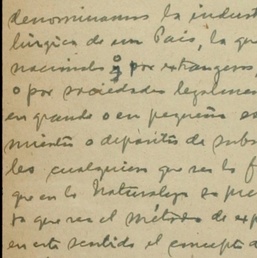 denominamos la indust
lúrgica de un País, la que
nacionales o por extrangeros,
o por sociedades legalmen
en grande o en pequeña es
mientos o depósitos de subs
les cualquiera que sea la f
que en la Naturaleza se pre
ta que sea el método de exp
en este sentido el concepto d